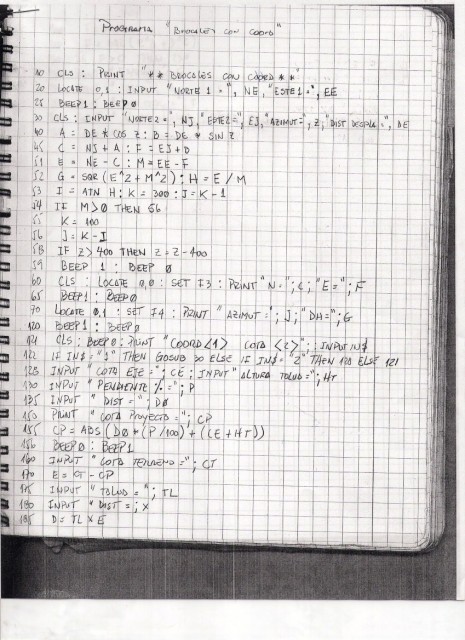 PROGRAMA "BROCALES CON COORD"
10 CLS : PRINT "** BROCALES CON COORD **"
20 LOCATE 0,1 : INPUT "NORTE 1 =", NE, "ESTE1=", EE
25 BEEP1 : BEEP0
30 CLS: INPUT "NORTE2=", NJ, "ESTE2=", EJ, "AZIMUT=", Z, "DIST DESPLA=", DE
40 A = DE * COS Z : B = DE * SIN Z
45 C = NJ + A : F = EJ + B
51 E = NE - C : M = EE - F
52 G = SQR (E^2 + M^2) : H = E / M
53 I = ATN H : K = 300 : J = K - I
54 IF M > 0 THEN 56
55 K = 100
56 J = K - I
58 IF Z > 400 THEN Z = Z - 400
59 BEEP 1 : BEEP 0
60 CLS : LOCATE 0,0 : SET F3 : PRINT "N=";C; "E="; F
65 BEEP1 : BEEP0
70 LOCATE 0,1 : SET F4 : PRINT "AZIMUT="; J; "DH="; G
120 BEEP1 : BEEP0
121 CLS : BEEP0 : PRINT "COORD<1> COTA <2>" : INPUT IN$
122 IF IN$ = "1" THEN GOSUB 30 ELSE IF IN$ = "2" THEN 128 ELSE 121
128 INPUT "COTA EJE="; CE : INPUT "ALTURA TALUD="; HT
130 INPUT "PENDIENTE %="; P
135 INPUT "DIST="; D0
150 PRINT "COTA PROYECTO="; CP
155 CP = ABS (D0 * (P/100) + (CE + HT))
156 BEEP0 : BEEP1
160 INPUT "COTA TERRENO="; CT
170 E = CT - CP
175 INPUT "TALUD="; TL
180 INPUT "DIST=; X
185 D = TL * E